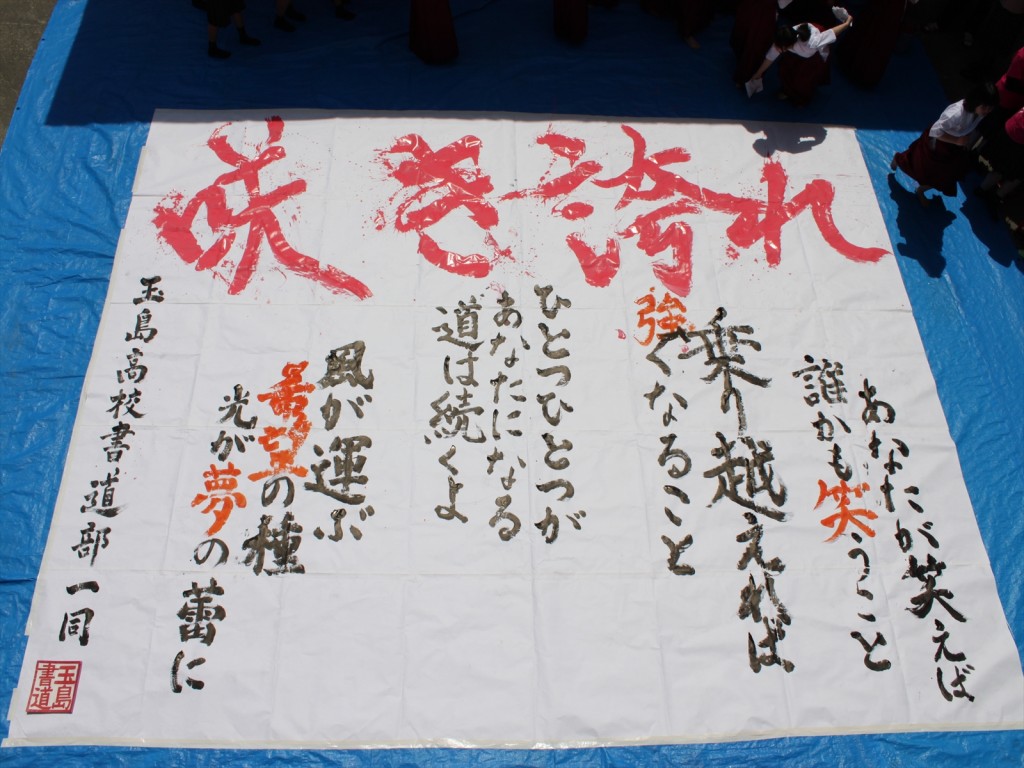 咲き誇れ
あなたが笑えば
誰かも笑うこと
乗り越えれば
強くなること
ひとつひとつが
あなたになる
道は続くよ
風が運ぶ
希望の種
光が夢の
蕾に
玉島高校書道部一同
玉島
書道